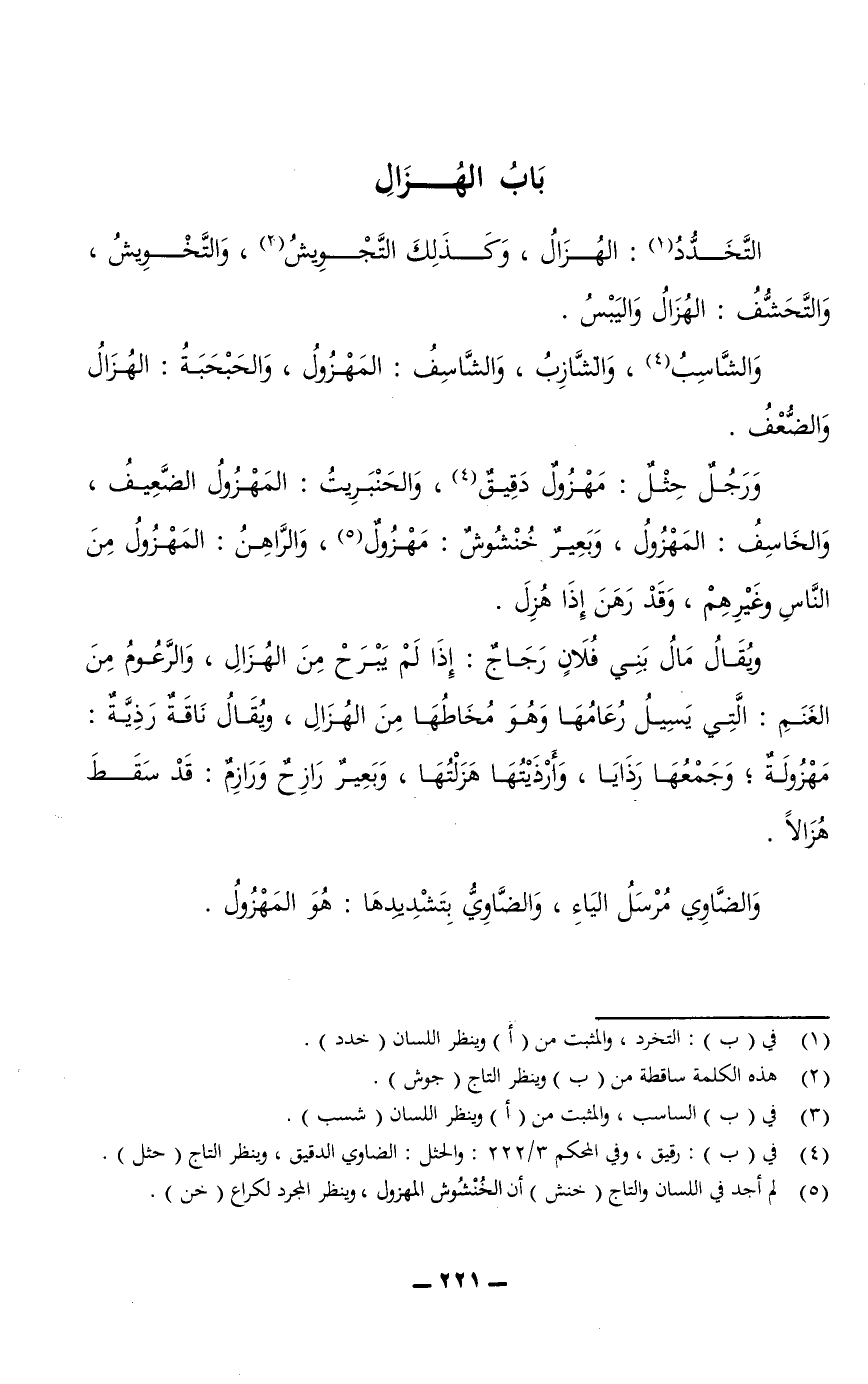 بَابُ الهُـــزَالِ
التَّخَــدُّدُ(١) : الهُــزَالُ ، وَكَــذَلِكَ التَّجْــوِيشُ(٢) ، وَالتَّخْــوِيشُ ،
وَالتَّحَشُّفُ : الهُزَالُ وَاليَبْسُ .
وَالشَّاسِبُ(٤) ، وَالشَّازِبُ ، وَالشَّاسِفُ : المَهْـزُولُ ، وَالحَبْحَبَـةُ : الهُـزَالُ
وَالضُّعْفُ .
وَرَجُـلٌ حِثْـلٌ : مَهْـزُولٌ دَقِيـقٌ(٤) ، وَالحَنْبَـرِيتُ : المَهْـزُولُ الضَّعِيـفُ ،
وَالخَاسِفُ : المَهْزُولُ ، وَبَعِيـرٌ خُنْشُوشٌ : مَهْـزُولٌ(٥) ، وَالرَّاهِـنُ : المَهْـزُولُ مِنَ
النَّاسِ وغَيْرِهِمْ ، وَقَدْ رَهَنَ إِذَا هُزِلَ .
ويُقَـالُ مَالُ بَنِـي فُلَانٍ رَجَـاجٌ : إِذَا لَمْ يَبْـرَحْ مِنَ الهُـزَالِ ، وَالرَّعُـومُ مِنَ
الغَنَـمِ : الَّتِـي يَسِيـلُ رُعَامُهَـا وَهُـوَ مُخَاطُهَـا مِنَ الهُـزَالِ ، ويُقَـالُ نَاقَـةٌ رَذِيَّـةٌ :
مَهْزُولَـةٌ ؛ وَجَمْعُهَـا رَذَايَـا ، وَأَرْذَيْتُهَـا هَزَلْتُهَـا ، وَبَعِيـرٌ رَازِحٌ وَرَازِمٌ : قَدْ سَقَــطَ
هُزَالاً .
وَالضَّاوِي مُرْسَلُ اليَاءِ ، وَالضَّاوِيُّ بِتَشْدِيدِهَا : هُوَ المَهْزُولُ .
(١) في ( ب ) : التخرد ، والمثبت من ( أ ) وينظر اللسان ( خدد ) .
(٢) هذه الكلمة ساقطة من ( ب ) وينظر التاج ( جوش ) .
(٣) في ( ب ) الساسب ، والمثبت من ( أ ) وينظر اللسان ( شسب ) .
(٤) في ( ب ) : رقيق ، وفي المحكم ٢٢٢/٣ : والحثل : الضاوي الدقيق ، وينظر التاج ( حثل ) .
(٥) لم أجد في اللسان والتاج ( خنش ) أن الخُنْشُوش المهزول ، وينظر المجرد لكراع ( خن ) .
ـ ٢٢١ ـ